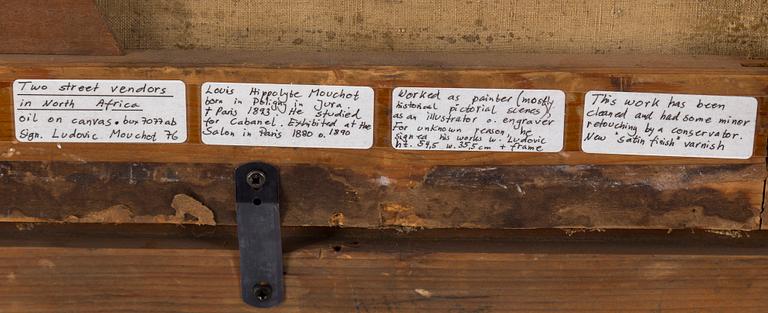 Two street vendors
in North Africa
oil on canvas. bux7077ab
Sign. Ludovic Mouchot 76
Louis Hippolyte Mouchot
born in Poligny in Jura.
† Paris 1893. He studied
for Cabanel. Exhibited at the
Salon in Paris 1880 o. 1890
Worked as painter (mostly
historical pictorial scenes),
as an illustrator o. engraver
For unknown reason he
signed his works w. "Ludovic
ht. 59,5 w. 35,5 cm + frame
This work has been
cleaned and had some minor
retouching by a conservator.
New "satin finish" varnish